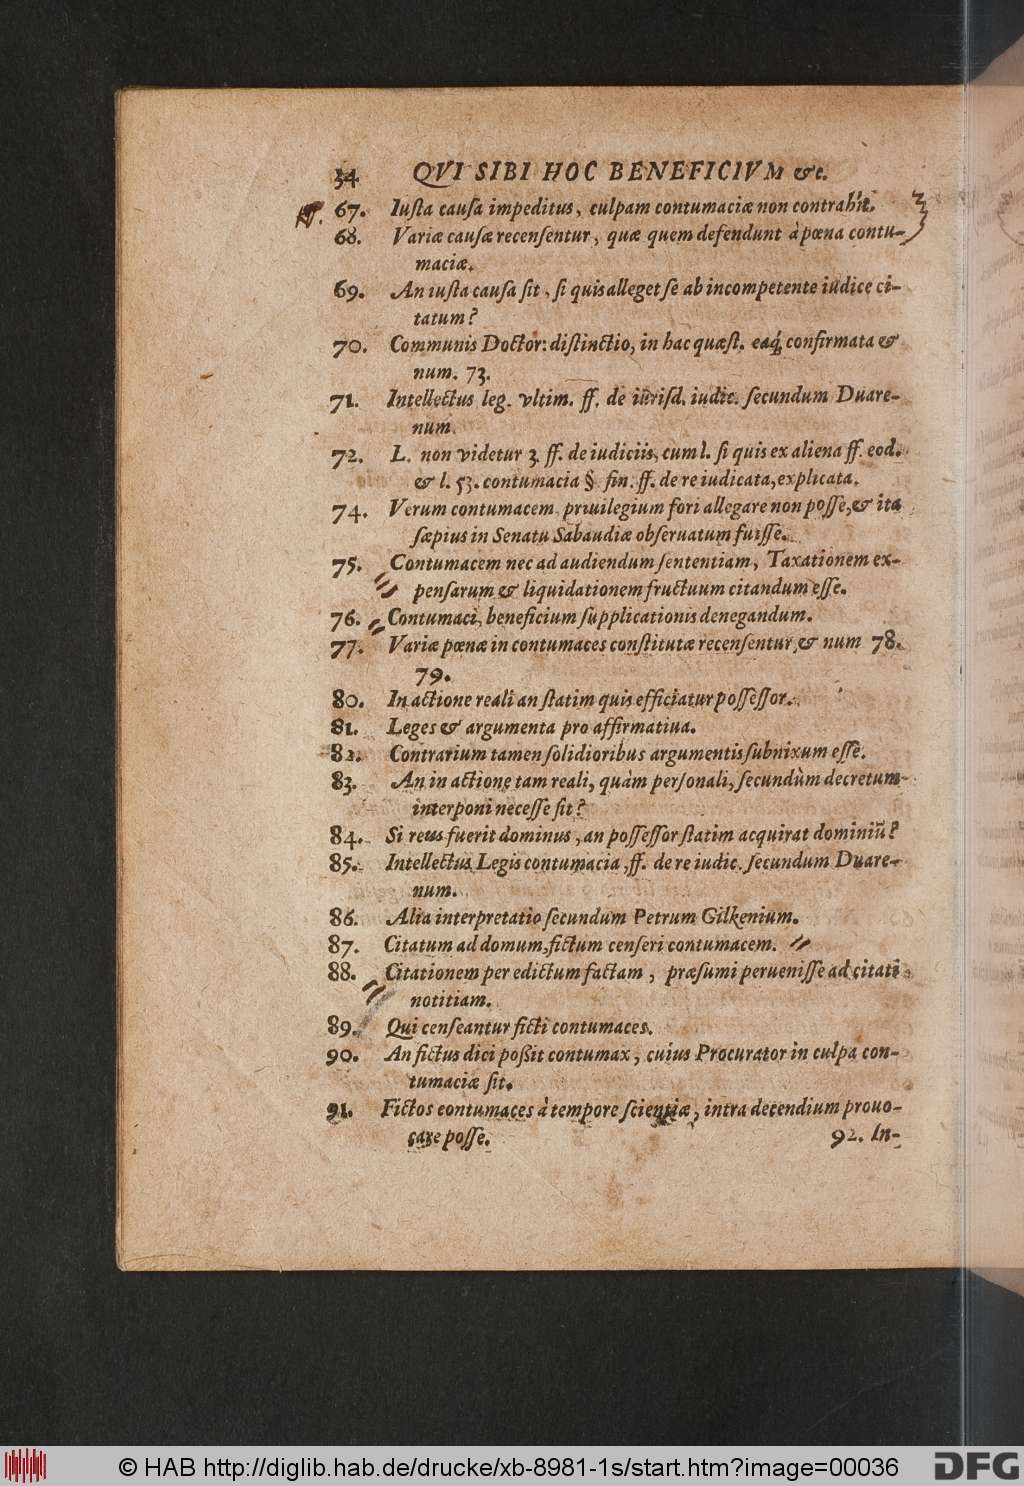 34 QVI SIBI HOC BENEFICIVM &c.
67. Iuſta cauſa impeditus, culpam contumaciæ non contrahit.
68. Variæ cauſæ recenſentur, quæ quem defendunt à pœna contu-
maciæ.
69. An iuſta cauſa ſit, ſi quis alleget ſe ab incompetente iudice ci-
tatum?
70. Communis Doctor: diſtinctio, in hac quæſt. eaq́, confirmata &
num. 73.
71. Intellectus leg. vltim. ff. de iuriſd. iudic. ſecundum Duare-
num.
72. L. non videtur 3. ff. de iudiciis, cum l. ſi quis ex aliena ff. eod.
& l. 53. contumacia § fin. ff. de re iudicata, explicata.
74. Verum contumacem priuilegium fori allegare non poſſe, & ita
ſæpius in Senatu Sabaudiæ obſeruatum fuiſſe.
75. Contumacem nec ad audiendum ſententiam, Taxationem ex-
penſarum & liquidationem fructuum citandum eſſe.
76. Contumaci, beneficium ſupplicationis denegandum.
77. Variæ pœnæ in contumaces conſtitutæ recenſentur, & num 78.
79.
80. In actione reali an ſtatim quis efficiatur poſſeſſor.
81. Leges & argumenta pro affirmatiua.
82. Contrarium tamen ſolidioribus argumentis ſubnixum eſſe.
83. An in actione tam reali, quàm perſonali, ſecundùm decretum
interponi neceſſe ſit?
84. Si reus fuerit dominus, an poſſeſſor ſtatim acquirat dominiũ?
85. Intellectus Legis contumacia, ff. de re iudic. ſecundum Duare-
num.
86. Alia interpretatio ſecundum Petrum Gilkenium.
87. Citatum ad domum, fictum cenſeri contumacem.
88. Citationem per edictum factam, præſumi perueniſſe ad citati
notitiam.
89. Qui cenſeantur ficti contumaces.
90. An fictus dici poßit contumax, cuius Procurator in culpa con-
tumaciæ ſit.
91. Fictos contumaces à tempore ſcientiæ, intra decendium prouo-
care poſſe.
92. In-
© HAB http://diglib.hab.de/drucke/xb-8981-1s/start.htm?image=00036
DFG